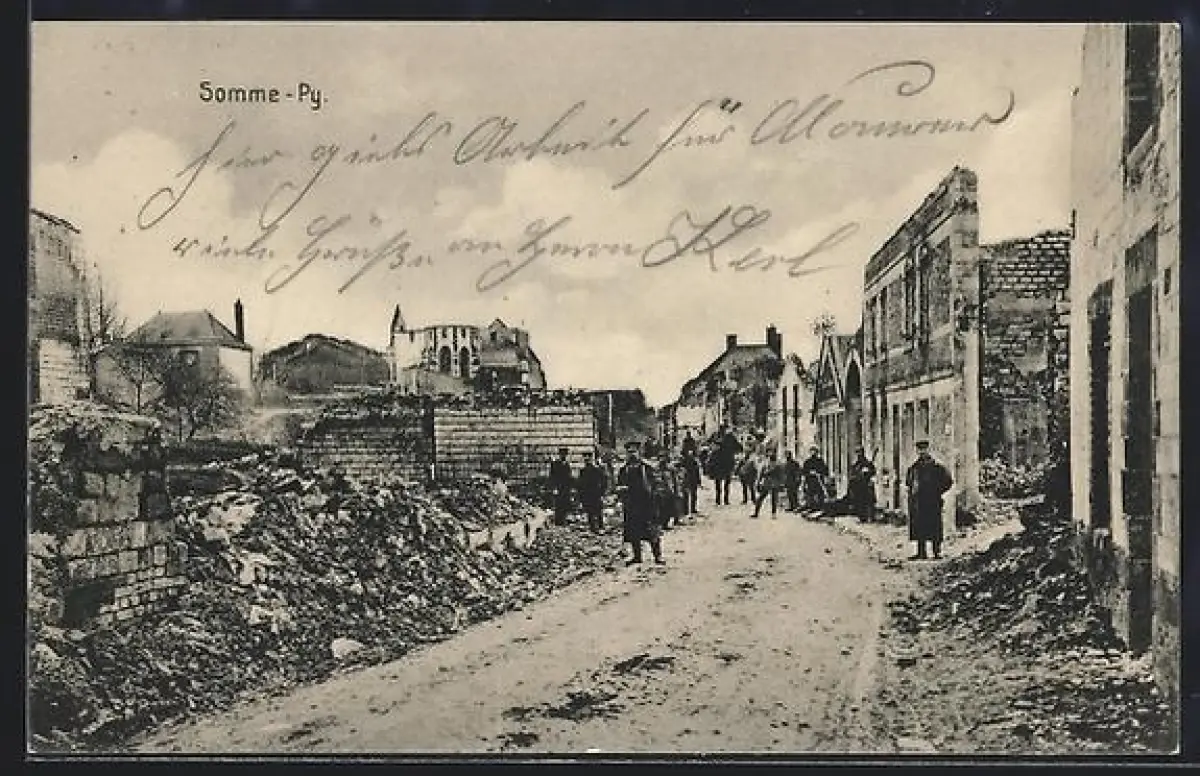 Somme-Py.
hier giebt Arbeit für Maurer
viele Grüße an Herrn Kerl